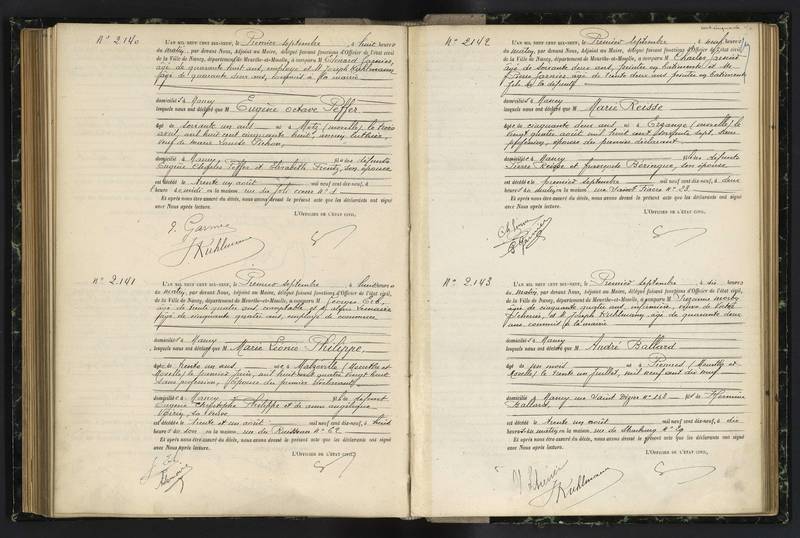 N° 2.140
L'AN MIL NEUF CENT DIX-NEUF, le Premier septembre, à huit heures
du matin, par devant Nous, Adjoint au Maire, délégué faisant fonctions d'Officier de l'état civil
de la Ville de Nancy, département de Meurthe-et-Moselle, a comparu M Edouard Garnier,
âgé de quarante huit ans, employé et M. Joseph Kuhlmann
âgé de quarante deux ans, à la mairie
domiciliés à Nancy
lesquels nous ont déclaré que M Eugène Octave Peffer
âgé de soixante un ans, né à Metz (Moselle) le trois
août mil huit cent cinquante huit, ancien luthier,
veuf de Marie Pichon,
domicilié à Nancy, fils des défunts
Eugène Charles Peffer et Elisabeth Frentz, son épouse
est décédé le trente un août mil neuf cent dix-neuf, à
heures en la maison, rue du N° 1
Et après nous être assuré du décès, nous avons dressé le présent acte que les déclarants ont signé
avec Nous après lecture.
L'OFFICIER DE L'ÉTAT CIVIL,
E. Garnier
J Kuhlmann
N° 2.141
L'AN MIL NEUF CENT DIX-NEUF, le Premier septembre, à huit heures
du matin, par devant Nous, Adjoint au Maire, délégué faisant fonctions d'Officier de l'état civil,
de la Ville de Nancy, département de Meurthe-et-Moselle, a comparu M Georges
âgé de trente quatre ans, comptable et M.
âgé de cinquante quatre ans, employé de commerce
domiciliés à Nancy
lesquels nous ont déclaré que M Marie Léonie Philippe,
âgée de trente un ans née à Malzéville (Meurthe et
Moselle) le premier juin, mil huit cent quatre vingt huit
sans profession, épouse du premier déclarant
domiciliée à Nancy fille de défunt
Eugène Christophe Philippe et de Anne Angélique
sa veuve
est décédée le trente et un août mil neuf cent dix-neuf, à huit
heures du soir en la maison, rue du Ruisseau N° 62
Et après nous être assuré du décès, nous avons dressé le présent acte que les déclarants ont signé
avec Nous après lecture.
L'OFFICIER DE L'ÉTAT CIVIL,
N° 2142
L'AN MIL NEUF CENT DIX-NEUF, le Premier septembre, à neuf heures
du matin, par devant Nous, Adjoint au Maire, délégué faisant fonctions d'Officier de l'état civil
de la Ville de Nancy, département de Meurthe-et-Moselle, a comparu M Charles
âgé de soixante deux ans, peintre en bâtiments et M.
âgé de trente deux ans, peintre en bâtiments
fils de la défunte
domiciliés à Nancy
lesquels nous ont déclaré que M Marie Reisse
âgée de cinquante deux ans née à Erzange (Moselle) le
vingt quatre août mil huit cent soixante sept, sans
profession, épouse du premier déclarant
domiciliée à Nancy fille des défunts
Pierre Reisse et Béringue, son épouse
est décédée le premier septembre mil neuf cent dix-neuf, à deux
heures du matin en la maison, rue Saint Fiacre N° 23.
Et après nous être assuré du décès, nous avons dressé le présent acte que les déclarants ont signé
avec Nous après lecture.
L'OFFICIER DE L'ÉTAT CIVIL,
N° 2.143
L'AN MIL NEUF CENT DIX-NEUF, le Premier septembre, à dix heures
du matin, par devant Nous, Adjoint au Maire, délégué faisant fonctions d'Officier de l'état civil,
de la Ville de Nancy, département de Meurthe-et-Moselle, a comparu M Suzanne
âgée de cinquante quatre ans, infirmière, veuve de Victor
et M. Joseph Kuhlmann, âgé de quarante deux
ans, commis à la mairie
domiciliés à Nancy
lesquels nous ont déclaré que M André Ballard
âgé de un mois né à (Meurthe et
Moselle) le trente un juillet, mil neuf cent dix neuf
domicilié à Nancy rue Saint Dizier N° 142 fils de Hermine
Ballard,
est décédé le trente un août mil neuf cent dix-neuf, à dix
heures du matin en la maison, rue de Strasbourg N° 29
Et après nous être assuré du décès, nous avons dressé le présent acte que les déclarants ont signé
avec Nous après lecture.
L'OFFICIER DE L'ÉTAT CIVIL,
J Kuhlmann